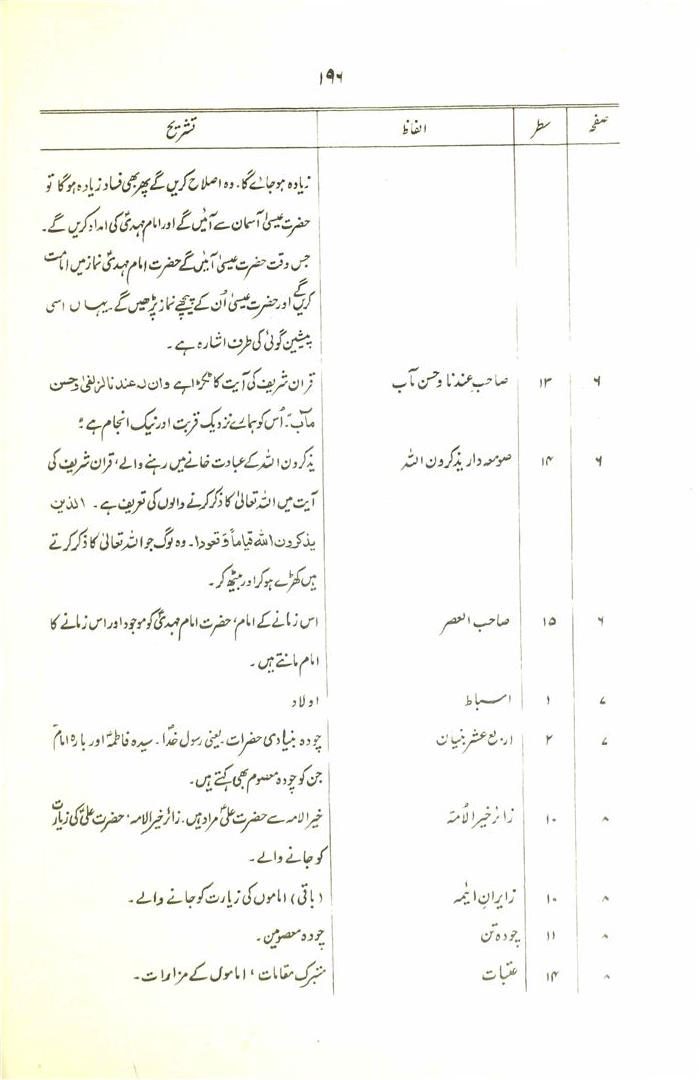 ۱۹۶
صفحہ سطر الفاظ تشریح
زیادہ ہو جائے گا۔ وہ اصلاح کریں گے پھر بھی فساد زیادہ ہوگا تو
حضرت عیسیٰ آسمان سے آئیں گے اور امام مہدیؑ کی امداد کریں گے۔
جس وقت حضرت عیسیٰ آئیں گے حضرت امام مہدیؑ نماز میں امامت
کریں گے اور حضرت عیسیٰ اُن کے پیچھے نماز پڑھیں گے۔ یہاں اسی
پیشین گوئی کی طرف اشارہ ہے۔
۶ ۱۳ صاحب عندنا وحسن مآب قرآن شریف کی آیت کا ٹکڑا ہے وان لہ عندنا لزلفیٰ وحسن
مآب۔ اُس کو ہمارے نزدیک قربت اور نیک انجام ہے؛
۶ ۱۴ صومعہ دار یذکرون اللہ یذکرون اللہ کے عبادت خانے میں رہنے والے، قرآن شریف کی
آیت میں اللہ تعالیٰ کا ذکر کرنے والوں کی تعریف ہے۔ الذین
یذکرون اللہ قیاماً وّقعودا۔ وہ لوگ جو اللہ تعالیٰ کا ذکر کرتے
ہیں کھڑے ہو کر اور بیٹھ کر۔
۶ ۱۵ صاحب العصر اس زمانے کے امام، حضرت امام مہدیؑ کو موجود اور اس زمانے کا
امام مانتے ہیں۔
۷ ۱ اسباط اولاد
۷ ۲ اربع عشر بنیان چودہ بنیادی حضرات۔ یعنی رسول خداؐ۔ سیدہ فاطمہؑ اور بارہ امامؑ
جن کو چودہ معصوم بھی کہتے ہیں۔
۸ ۱۰ زائر خیر الاُمتہ خیر الامہ سے حضرت علیؑ مراد ہیں۔ زائر خیر الامہ، حضرت علیؑ کی زیارت
کو جانے والے۔
۸ ۱۰ زایرانِ ائیمہ (باقی) اماموں کی زیارت کو جانے والے۔
۸ ۱۱ چودہ تن چودہ معصومین۔
۸ ۱۴ عتبات متبرک مقامات، اماموں کے مزارات۔